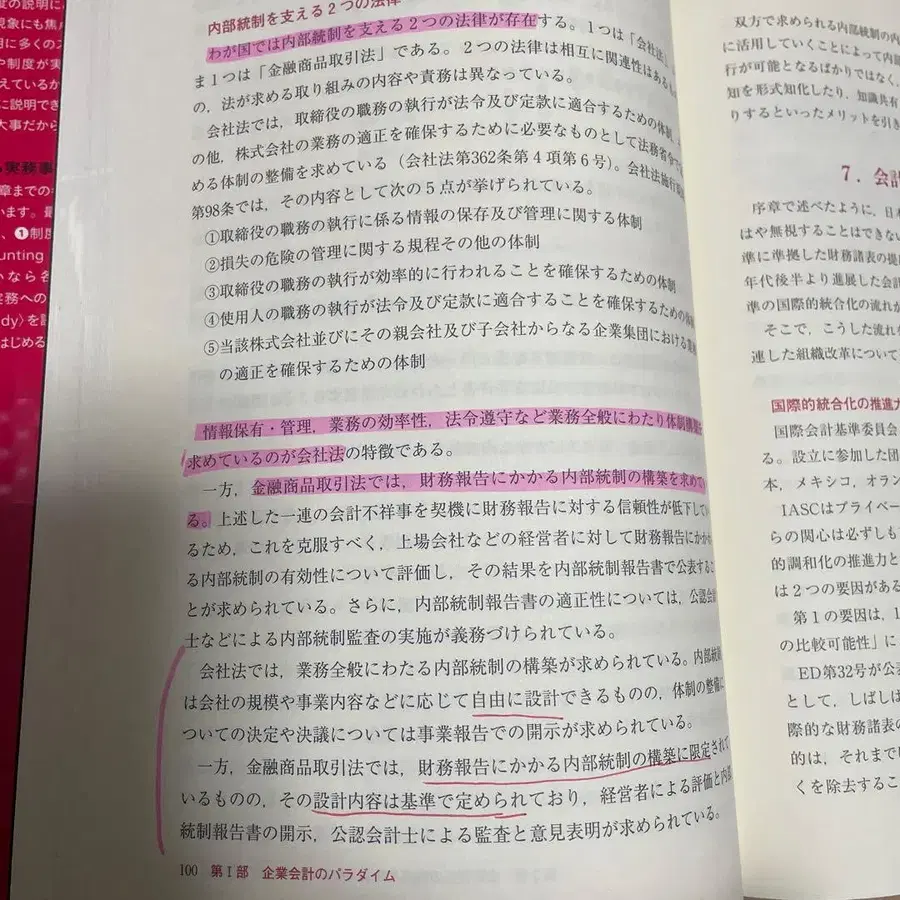 内部統制を支える2つの法律
わが国では内部統制を支える2つの法律が存在する。1つは「会社法」
ま1つは「金融商品取引法」である。2つの法律は相互に関連性はあるも
の,法が求める取り組みの内容や責務は異なっている。
会社法では,取締役の職務の執行が法令及び定款に適合するための体制
の他,株式会社の業務の適正を確保するために必要なものとして法務省令で
める体制の整備を求めている(会社法第362条第4項第6号)。会社法施行規
第98条では,その内容として次の5点が挙げられている。
①取締役の職務の執行に係る情報の保存及び管理に関する体制
②損失の危険の管理に関する規程その他の体制
③取締役の職務の執行が効率的に行われることを確保するための体制
④使用人の職務の執行が法令及び定款に適合することを確保するための
⑤当該株式会社並びにその親会社及び子会社からなる企業集団における業
の適正を確保するための体制
情報保有・管理,業務の効率性,法令遵守など業務全般にわたり体制
求めているのが会社法の特徴である。
一方,金融商品取引法では,財務報告にかかる内部統制の構築を求めて
る。上述した一連の会計不祥事を契機に財務報告に対する信頼性が低下して
るため,これを克服すべく,上場会社などの経営者に対して財務報告にかか
る内部統制の有効性について評価し,その結果を内部統制報告書で公表するこ
とが求められている。さらに,内部統制報告書の適正性については,公認会計
士などによる内部統制監査の実施が義務づけられている。
会社法では,業務全般にわたる内部統制の構築が求められている。内部統制
は会社の規模や事業内容などに応じて自由に設計できるものの,体制の整備に
ついての決定や決議については事業報告での開示が求められている。
一方,金融商品取引法では,財務報告にかかる内部統制の構築に限定されて
いるものの,その設計内容は基準で定められており,経営者による評価と内部
統制報告書の開示,公認会計士による監査と意見表明が求められている。
100 第Ⅰ部 企業会計のパラダイム
双方で求められる内部統制の内
に活用していくことによって内部
行が可能となるばかりではなく,
知を形式知化したり,知識共有
りするといったメリットを引き
7.会計
序章で述べたように,日本
はや無視することはできない
準に準拠した財務諸表の提
年代後半より進展した会計
準の国際的統合化の流れが
そこで,こうした流れ
連した組織改革について
国際的統合化の推進力
国際会計基準委員会
る。設立に参加した団
本,メキシコ,オラン
IASCはプライベー
らの関心は必ずしも
的調和化の推進力と
は2つの要因がある
第1の要因は,1
の比較可能性」に
ED第32号が公表
として,しばしば
際的な財務諸表の
的は,それまで
くを除去するこ
度の説明に
現象にも焦点
明に多くのス
や制度が実
えているか
に説明でき
大事だから
実務事
章までの
います。最
、❶制度
unting
いなら各
実務への
dy〉を
はじめる